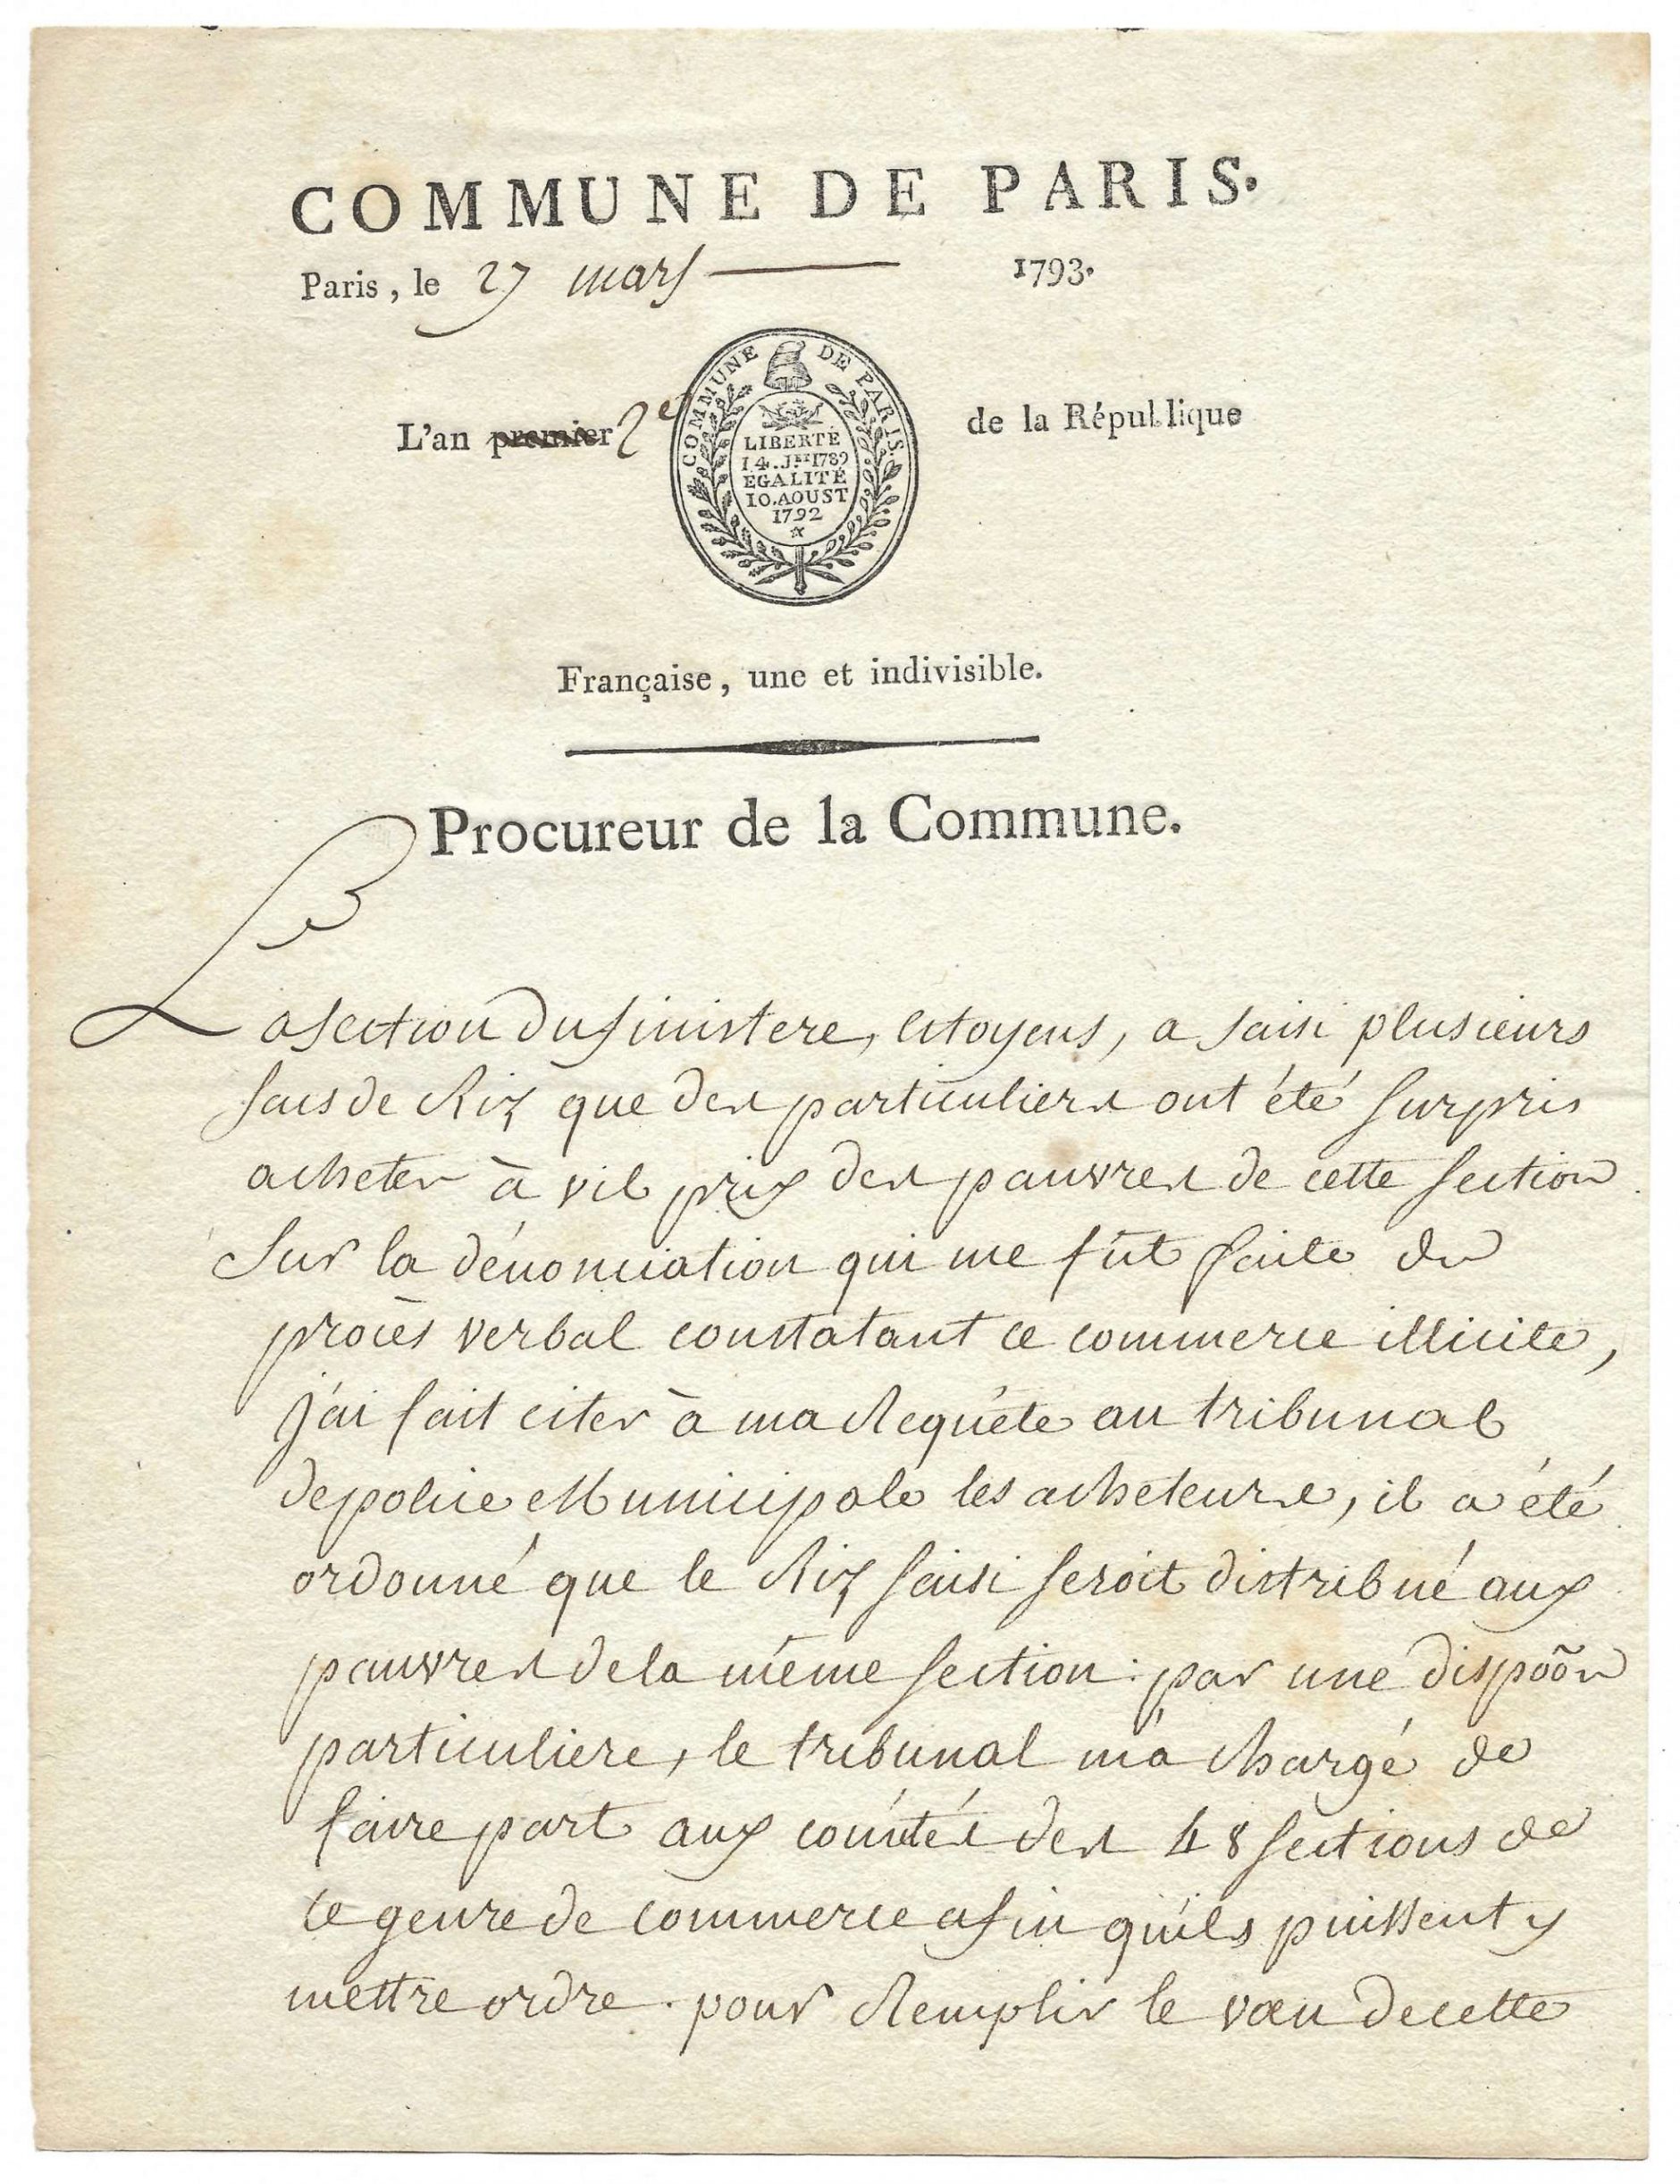 COMMUNE DE PARIS.
Paris, le 27 mars 1793.
L'an premier 2e de la République
COMMUNE DE PARIS.
LIBERTÉ
14. Jet 1789
EGALITÉ
10. AOUST
1792
Française, une et indivisible.
Procureur de la Commune.
La section du finistere, Citoyens, a saisi plusieurs
sacs de Riz que des particuliers ont été surpris
acheter à vil prix des pauvres de cette section.
Sur la dénonciation qui me fût faite du
procès verbal constatant ce commerce illicite,
j'ai fait citer à ma Requête au tribunal
de police Municipale les acheteurs, il a été
ordonné que le Riz saisi seroit distribué aux
pauvres de la même section : par une dispõõn
particuliere, le tribunal m'a chargé de
faire part aux comités des 48 sections de
ce genre de commerce afin qu'ils puissent y
mettre ordre. pour Remplir le vœu de cette